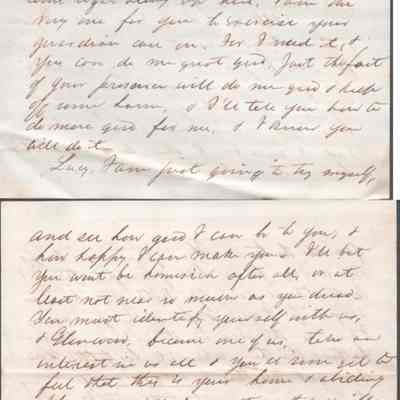 very one for you to exercise your
guardian care on. For I need it, &
you can do me great good. Just the fact
of your presence will do me good & keep
off some harm. & I'll tell you how to
do more good for me. & I know you
will do it.
Lucy, I am just going to try myself,
and see how good I can be to you, &
how happy I can make you. I'll bet
you wont be homesick after all, or at
least not near so much as you dread.
You must identify yourself with us,
& Glenwood, become one of us, take an
interest in us all & you'll soon get to
feel that this is your home & abiding